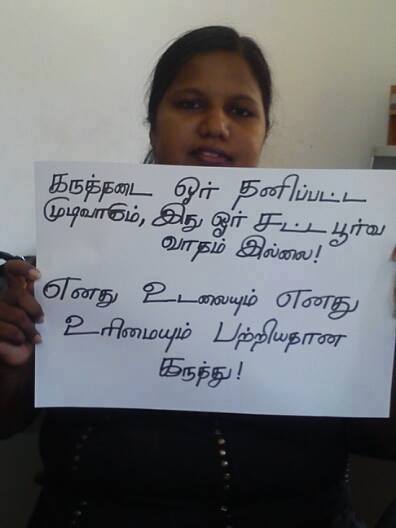 கருத்தடை ஓர் தனிப்பட்ட
முடிவாகும், இது ஓர் சட்ட பூர்வ
வாதம் இல்லை!
எனது உடலையும் எனது
உரிமையும் பற்றியதான
கருத்து!